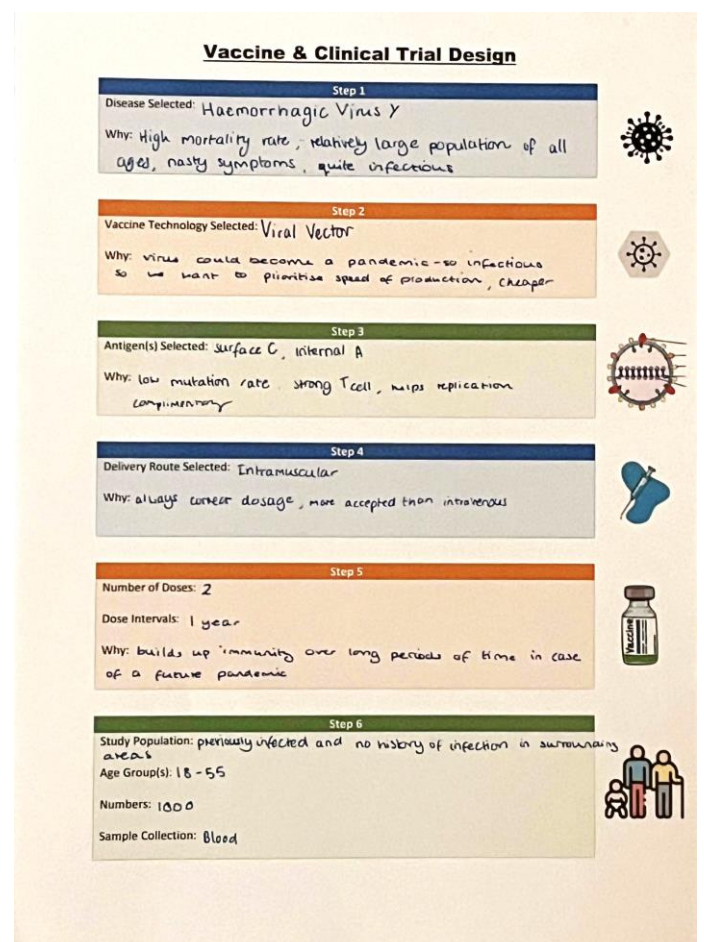 Vaccine & Clinical Trial Design
Step 1
Disease Selected: Haemorrhagic Virus Y
Why: High mortality rate, relatively large population of all
ages, nasty symptoms, quite infectious
Step 2
Vaccine Technology Selected: Viral Vector
Why: virus could become a pandemic - so infectious
so we want to prioritise speed of production, cheaper
Step 3
Antigen(s) Selected: surface C, internal A
Why: low mutation rate, strong T cell, helps replication
complimentary
Step 4
Delivery Route Selected: Intramuscular
Why: always correct dosage, more accepted than intravenous
Step 5
Number of Doses: 2
Dose Intervals: 1 year
Why: builds up immunity over long periods of time in case
of a future pandemic
Vaccine
Step 6
Study Population: previously infected and no history of infection in surrounding
areas
Age Group(s): 18-55
Numbers: 1000
Sample Collection: Blood